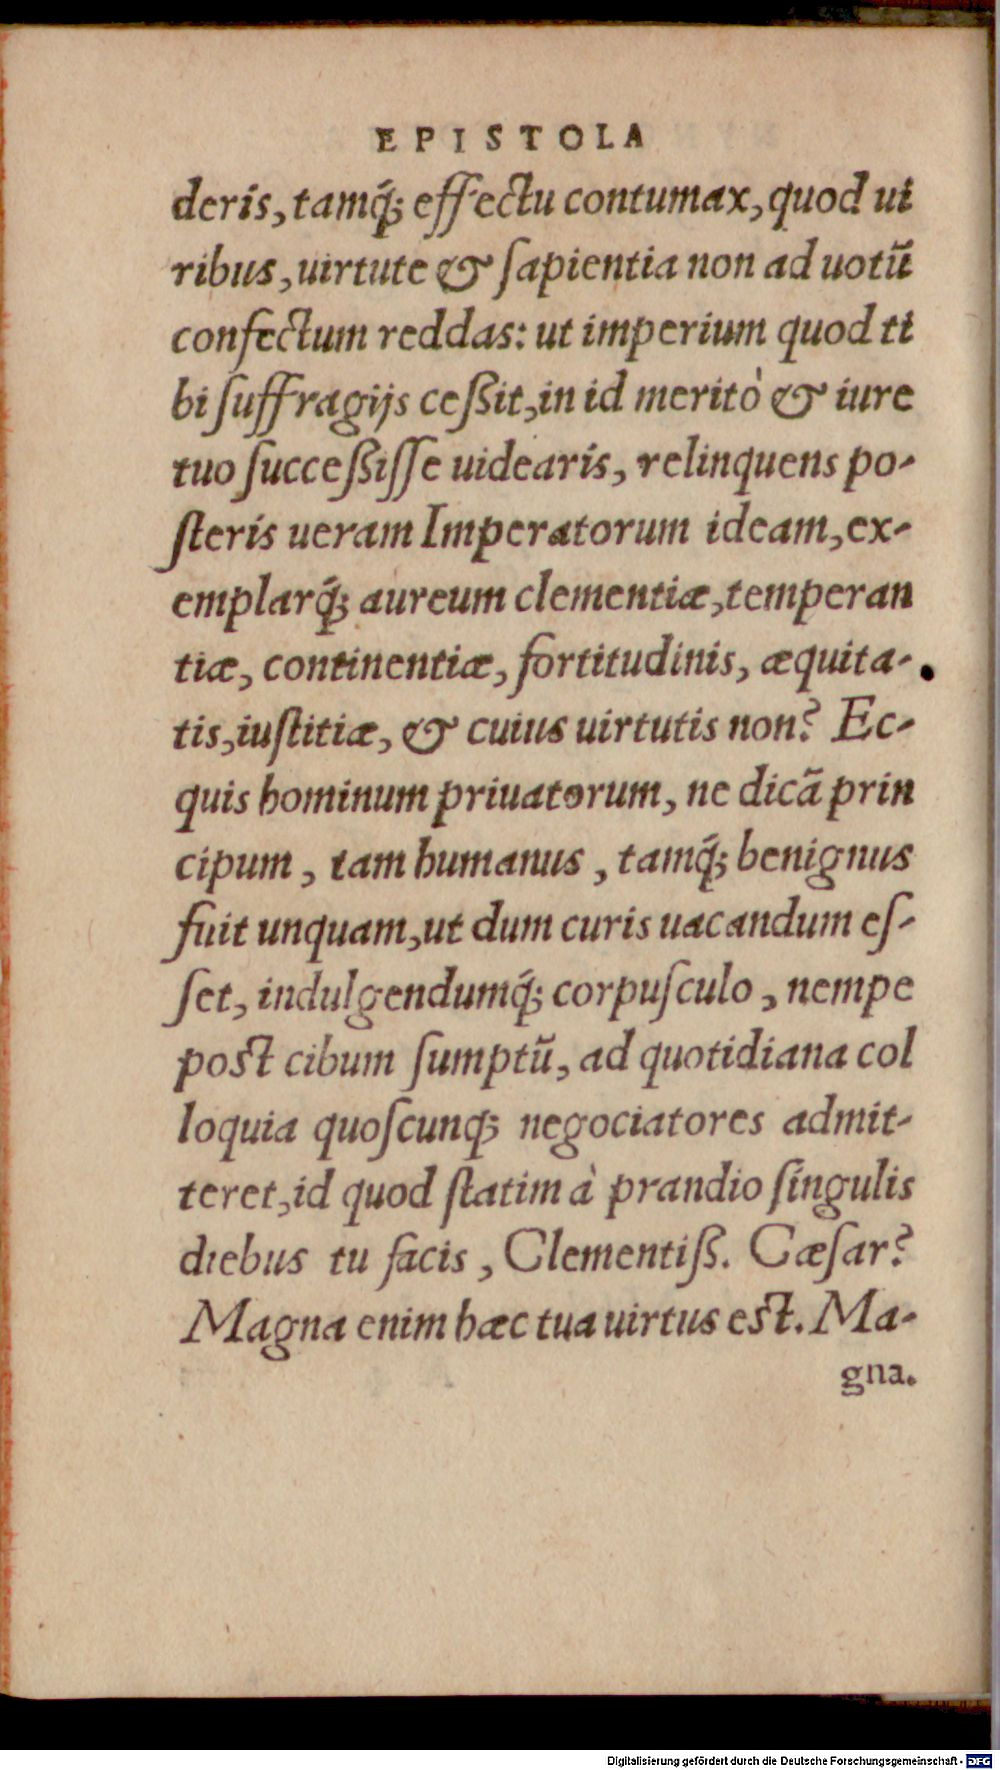 EPISTOLA
deris, tamq́; effectu contumax, quod ui
ribus, uirtute & ſapientia non ad uotũ
confectum reddas: ut imperium quod ti
bi ſuffragijs ceßit, in id meritò & iure
tuo ſucceßiſſe uidearis, relinquens po-
ſteris ueram Imperatorum ideam, ex-
emplarq́; aureum clementiæ, temperan
tiæ, continentiæ, fortitudinis, æquita-
tis, iuſtitiæ, & cuius uirtutis non? Ec-
quis hominum priuatorum, ne dicã prin
cipum, tam humanus, tamq́; benignus
fuit unquam, ut dum curis uacandum eſ-
ſet, indulgendumq́; corpuſculo, nempe
poſt cibum ſumptũ, ad quotidiana col
loquia quoſcunq; negociatores admit-
teret, id quod ſtatim à prandio ſingulis
diebus tu facis, Clementiß. Cæſar?
Magna enim hæc tua uirtus eſt. Ma-
gna.
Digitalisierung gefördert durch die Deutsche Forschungsgemeinschaft - DFG